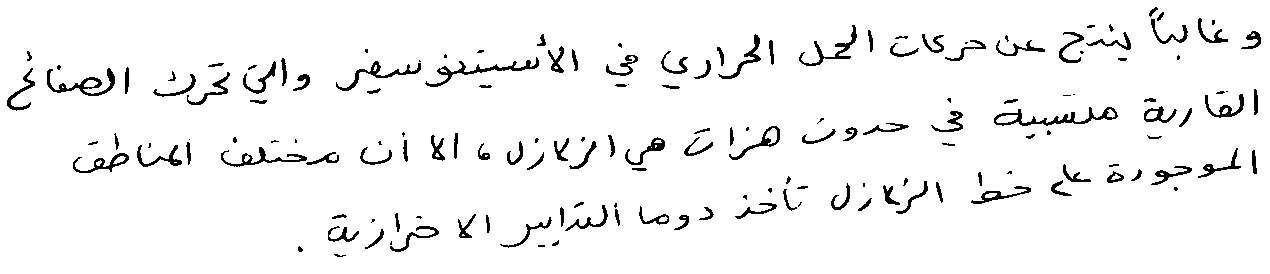 وغالباً ينتج عن حركات الحمل الحراري في الأستينوسفير والتي تحرك الصفائح
القارية متسببة في حدوث هزات هي الزلازل، الا أن مختلف المناطق
الموجودة على خط الزلازل تأخذ دوما التدابير الاحترازية.